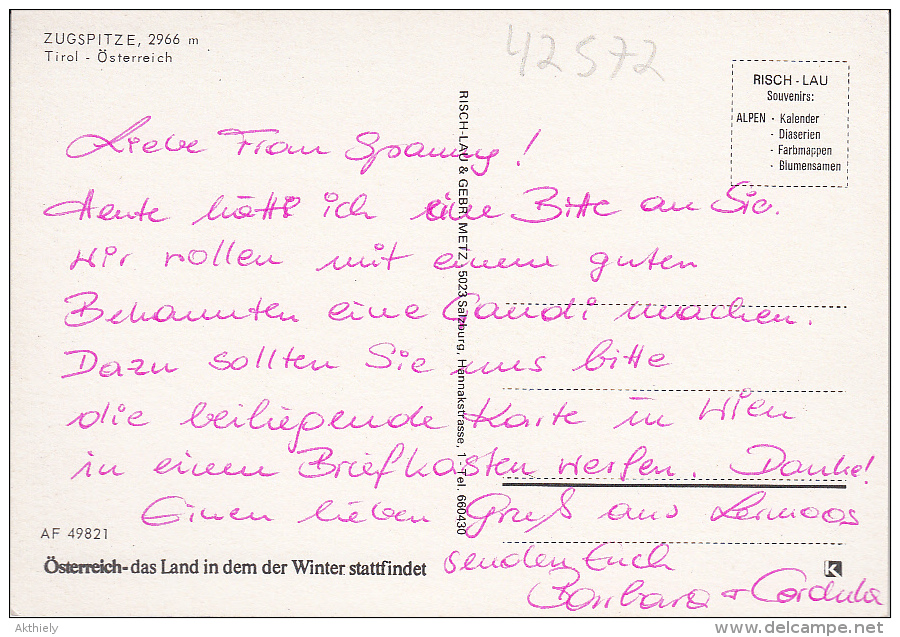 ZUGSPITZE, 2966 m
Tirol - Österreich
42572
RISCH-LAU
Souvenirs:
ALPEN - Kalender
- Diaserien
- Farbmappen
- Blumensamen
Liebe Frau Spanny!
Heute hätt ich eine Bitte an Sie.
Wir wollen mit einem guten
Bekannten eine Gaudi machen.
Dazu sollten Sie uns bitte
die beiliegende Karte in Wien
in einen Briefkasten werfen. Danke!
Einen lieben Gruß aus Lermoos
senden Euch
Barbara + Cordula
RISCH-LAU & GEBR. METZ, 5023 Salzburg, Hannakstrasse, 1 - Tel. 660430
AF 49821
Österreich-das Land in dem der Winter stattfindet
K
Akthiely
delcampe.net